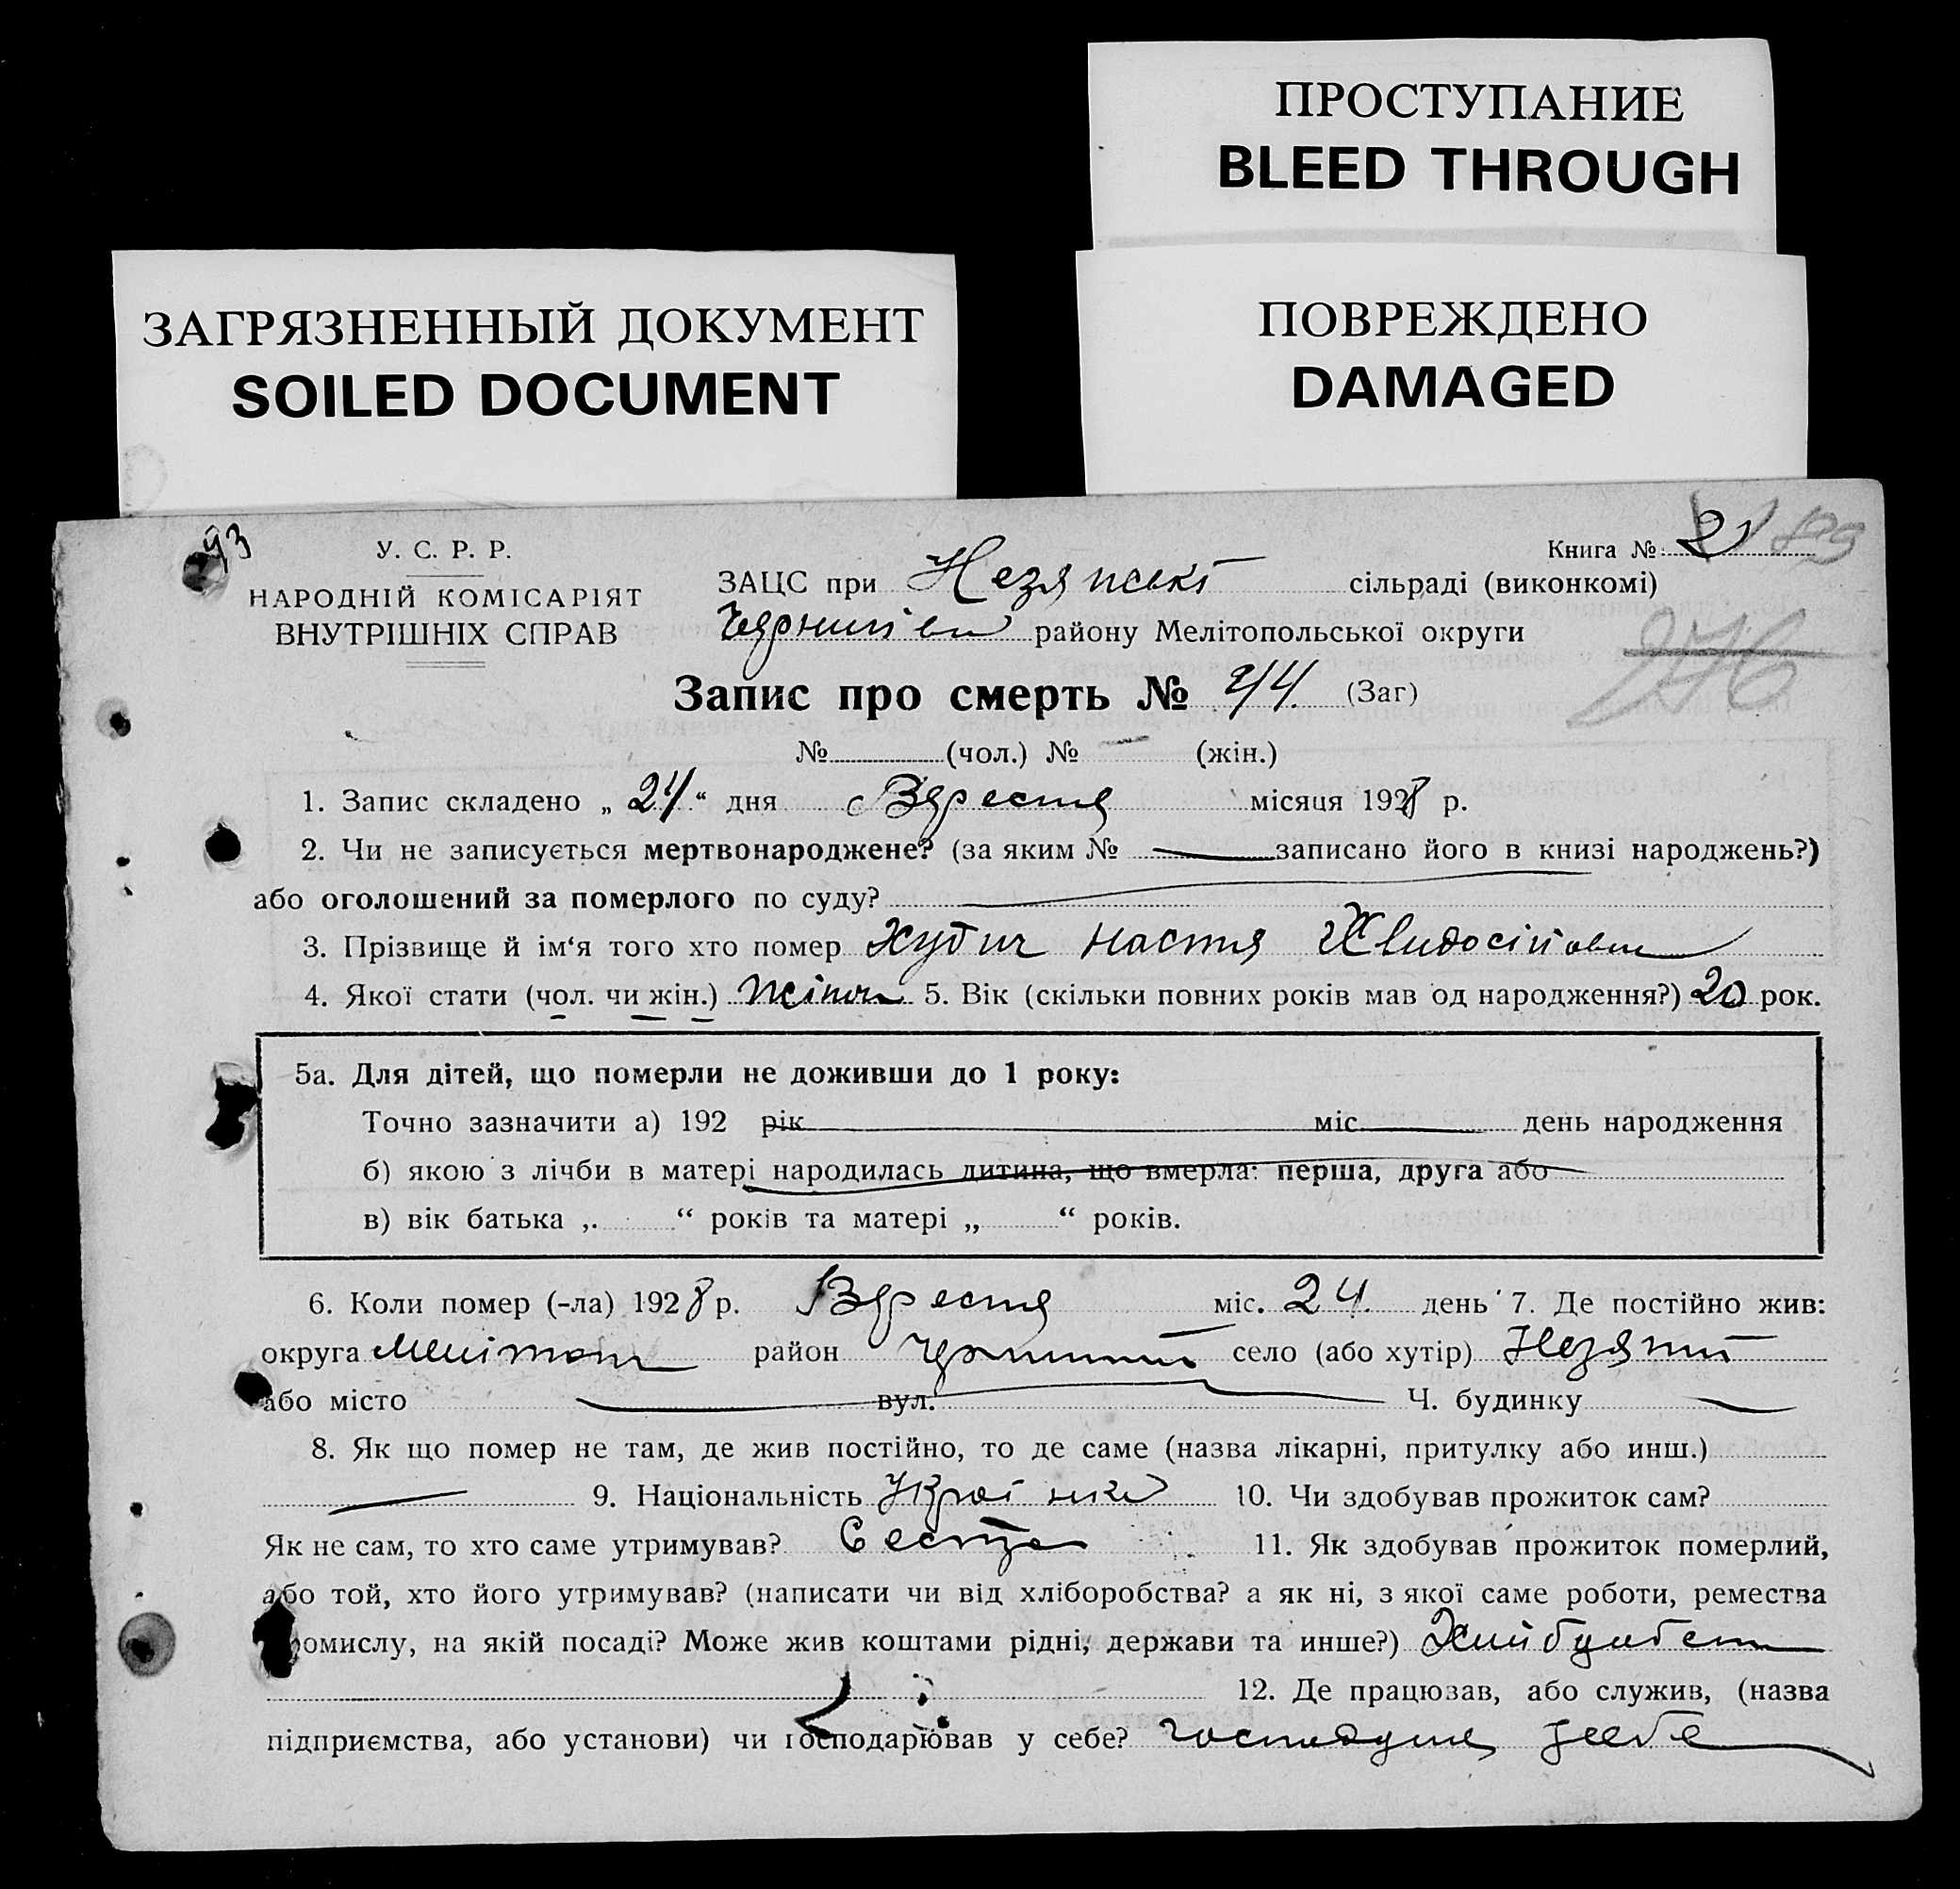 ПРОСТУПАНИЕ
BLEED THROUGH
ЗАГРЯЗНЕННЫЙ ДОКУМЕНТ
SOILED DOCUMENT
ПОВРЕЖДЕНО
DAMAGED
93
У. С. Р. Р.
НАРОДНІЙ КОМІСАРІЯТ
ВНУТРІШНІХ СПРАВ
Книга №
ЗАЦС при сільраді (виконкомі)
району Мелітопольської округи
Запис про смерть № (Заг)
№ (чол.) № (жін.)
1. Запис складено „ 24 “ дня Вересня місяця 1928 р.
2. Чи не записується мертвонароджене? (за яким № записано його в книзі народжень?)
або оголошений за померлого по суду?
3. Прізвище й ім‘я того хто помер Настя
4. Якої стати (чол. чи жін.) Жіноч 5. Вік (скільки повних років мав од народження?) 20 рок.
5а. Для дітей, що померли не доживши до 1 року:
Точно зазначити а) 192 рік міс. день народження
б) якою з лічби в матері народилась дитина, що вмерла: перша, друга або
в) вік батька „ “ років та матері „ “ років.
6. Коли помер (-ла) 1928 р. Вересня міс. 24 день 7. Де постійно жив:
округа Меліт район село (або хутір)
або місто вул. Ч. будинку
8. Як що помер не там, де жив постійно, то де саме (назва лікарні, притулку або инш.)
9. Національність 10. Чи здобував прожиток сам?
Як не сам, то хто саме утримував? Сестра 11. Як здобував прожиток померлий,
або той, хто його утримував? (написати чи від хліборобства? а як ні, з якої саме роботи, ремества
ромислу, на якій посаді? Може жив коштами рідні, держави та инше?)
12. Де працював, або служив, (назва
підприємства, або установи) чи господарював у себе?